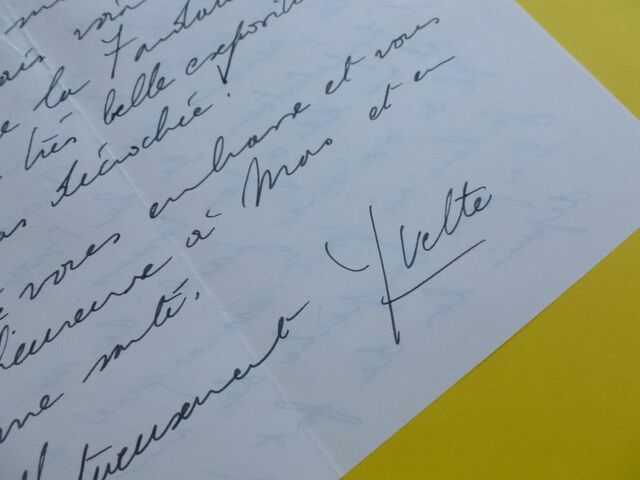 la Fondat
très belle exposit
décrochée!
vous embrasse et vous
heureuse à Mas et en
ne santé.
tueusement
Yvette